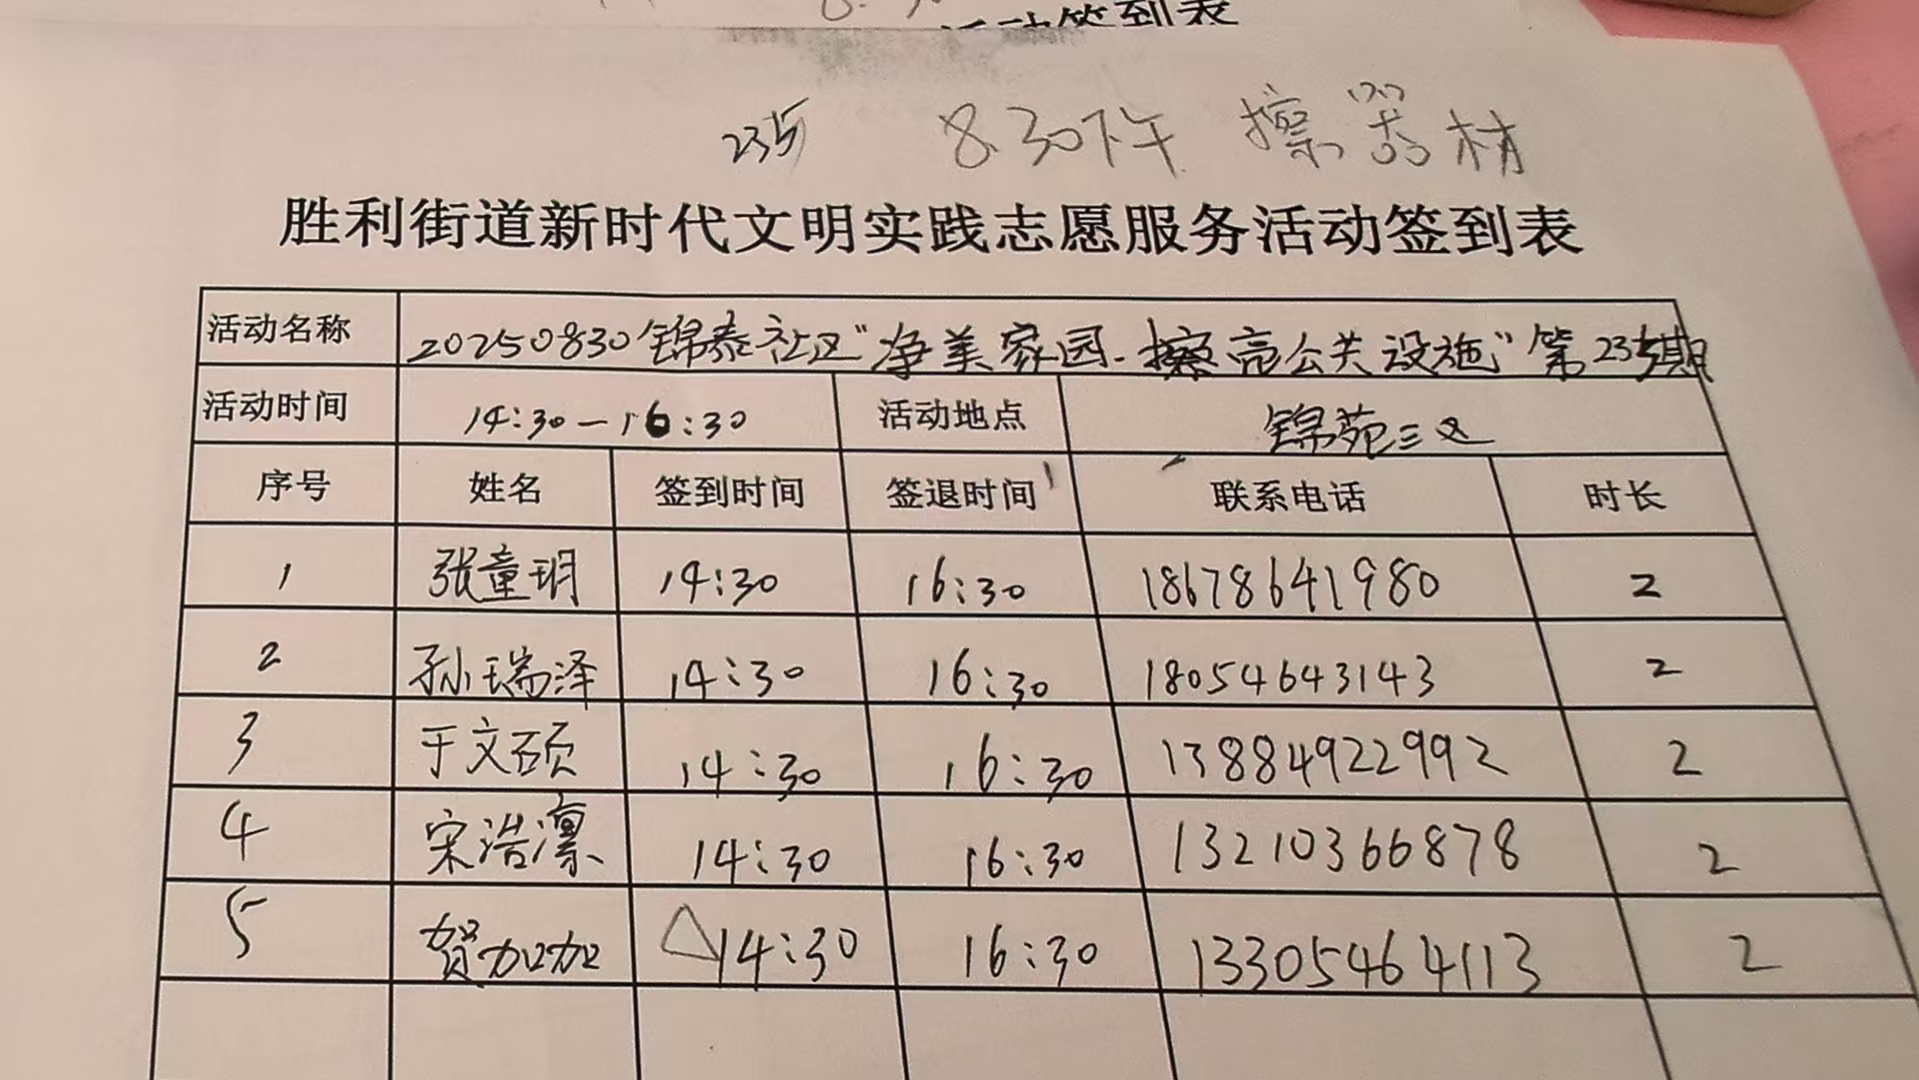 活动签到表
235 8.30下午 擦器材
胜利街道新时代文明实践志愿服务活动签到表
活动名称 20250830锦泰社区"净美家园-擦亮公共设施"第235期
活动时间 14:30-16:30 活动地点 锦苑三区
序号 姓名 签到时间 签退时间 联系电话 时长
1 张童玥 14:30 16:30 18678641980 2
2 孙瑞泽 14:30 16:30 18054643143 2
3 于文硕 14:30 16:30 13884922992 2
4 宋浩凛 14:30 16:30 13210366878 2
5 贺加加 14:30 16:30 13305464113 2